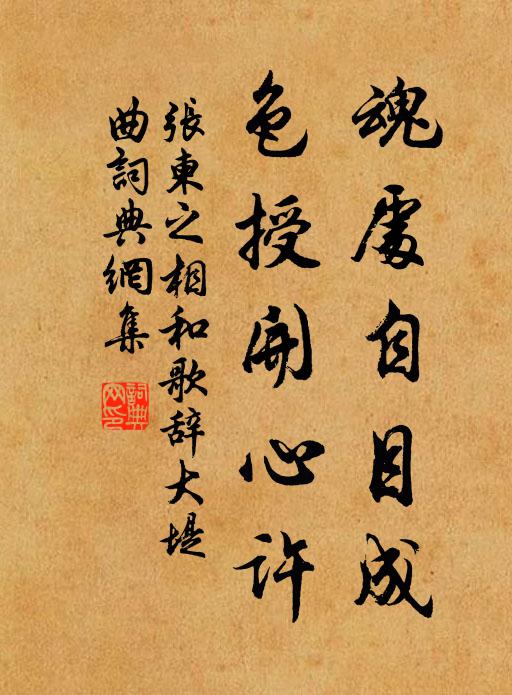 魂處自目成
色授開心許
張東之相和歌辞大堤
曲詞典網集
詞典
网印